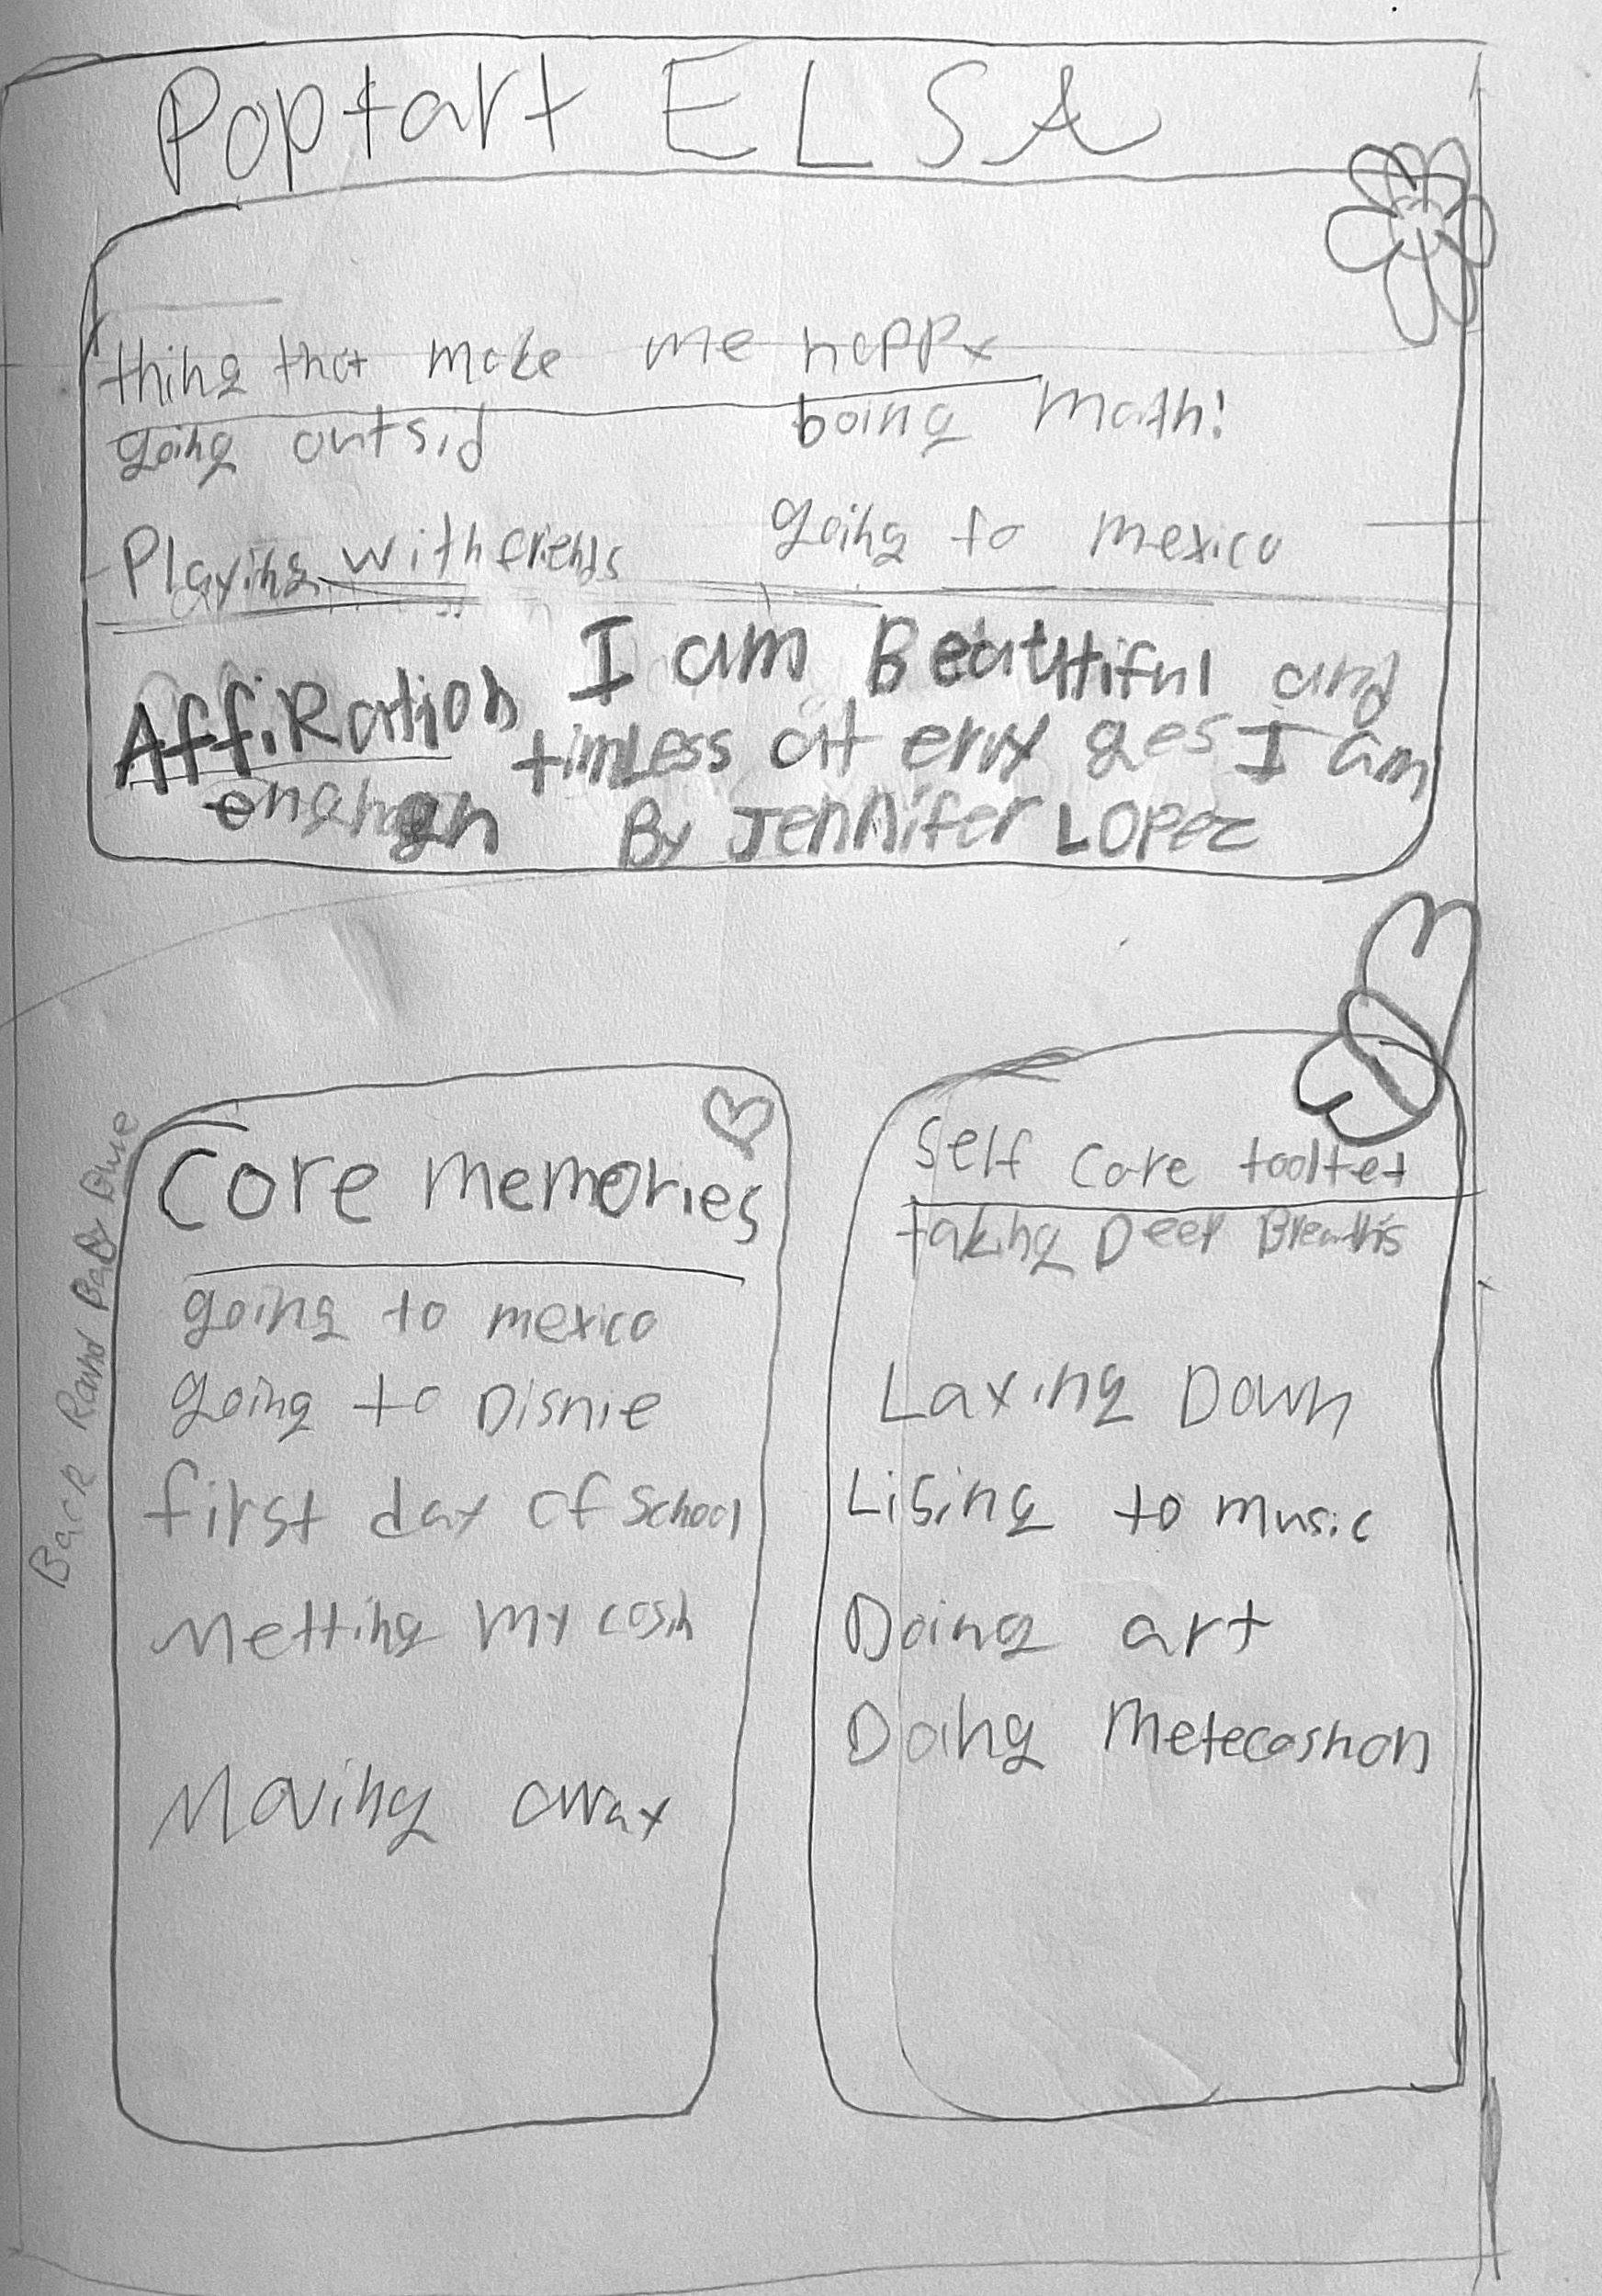 Poptart ELSA
thing that make me happy
going outsid
boing math!
Playing with friends
going to mexico
AffiRation I am Beauttiful and
timless at erry ges I am
enghogh By Jennifer Lopez
Core memories
going to mexico
going to Disnie
first day of school
Metting my cosin
Moving away
Self Care tooltet
taking Deep Breathis
Laying Down
Lising to music
Doing art
Doing Metecashon
Back Rawnd Baby Blue